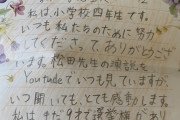 私は、小学校四年生です。
いつも私たちのために努力
してくださって、ありがとござ
います。松田先生の演説を
Youtubeでいつも見ていますが、
いつ聞いても、とても感動します。
私はまだ9才で選挙権があり